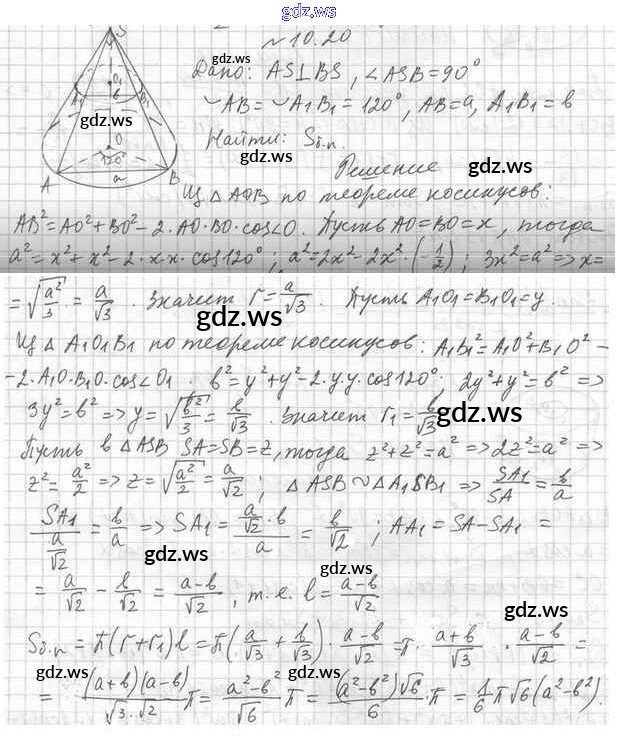 gdz.ws
№10.20
Дано: AS⊥BS, ∠ASB=90°
◡AB=◡A₁B₁=120°, AB=a, A₁B₁=b
Найти: Sб.п.
Решение
Из △AOB по теореме косинусов:
AB²=AO²+BO²-2·AO·BO·cos∠O. Пусть AO=BO=x, тогда
a²=x²+x²-2·x·x·cos120°; a²=2x²-2x²·(-1/2); 3x²=a²=>x=
=√(a²/3)=a/√3. Значит r=a/√3. Пусть A₁O₁=B₁O₁=y.
Из △A₁O₁B₁ по теореме косинусов: A₁B₁²=A₁O²+B₁O²-
-2·A₁O·B₁O·cos∠O₁. b²=y²+y²-2·y·y·cos120°; 2y²+y²=b²=>
3y²=b²=>y=√(b²/3)=b/√3. Значит r₁=b/√3
Пусть в △ASB SA=SB=z, тогда z²+z²=a²=>2z²=a²=>
z²=a²/2=>z=√(a²/2)=a/√2; △ASB∾△A₁SB₁=>SA₁/SA=b/a
SA₁/(a/√2)=b/a=>SA₁=(a/√2·b)/a=b/√2; AA₁=SA-SA₁=
=a/√2-b/√2=(a-b)/√2, т.е. l=(a-b)/√2
Sб.п=π(r+r₁)l=π(a/√3+b/√3)·(a-b)/√2=π·(a+b)/√3·(a-b)/√2=
=(a+b)(a-b)/(√3·√2)π=(a²-b²)/√6π=(a²-b²)√6/6·π=1/6π√6(a²-b²).
S
O₁
b
A₁
B₁
O
120°
A
a
B
gdz.ws
gdz.ws
gdz.ws
gdz.ws
gdz.ws
gdz.ws
gdz.ws
gdz.ws
gdz.ws
gdz.ws
gdz.ws